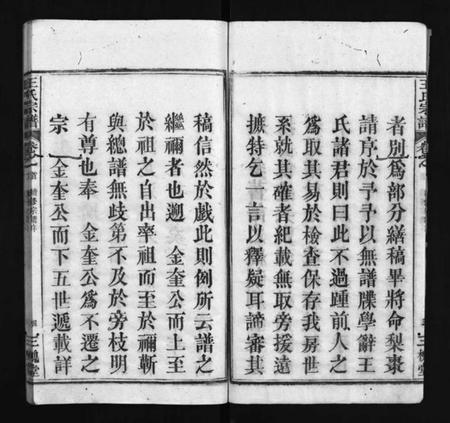 者別爲部分繕稿畢將命梨棗
請序於予予以無譜牒學辭王
氏諸君則曰此不過踵前人之
爲取其易於檢查保存我房世
系就其確者紀載無取旁援遠
摭特乞一言以釋疑耳諦審其
王氏宗譜
卷之首
三槐堂
稿信然於戲此則例所云譜之
繼禰者也遡　金奎公而上至
於祖之自出率祖而至於禰蘄
與總譜無歧第不及於旁枝明
有尊也奉　金奎公爲不遷之
宗　金奎公而下五世遞載詳